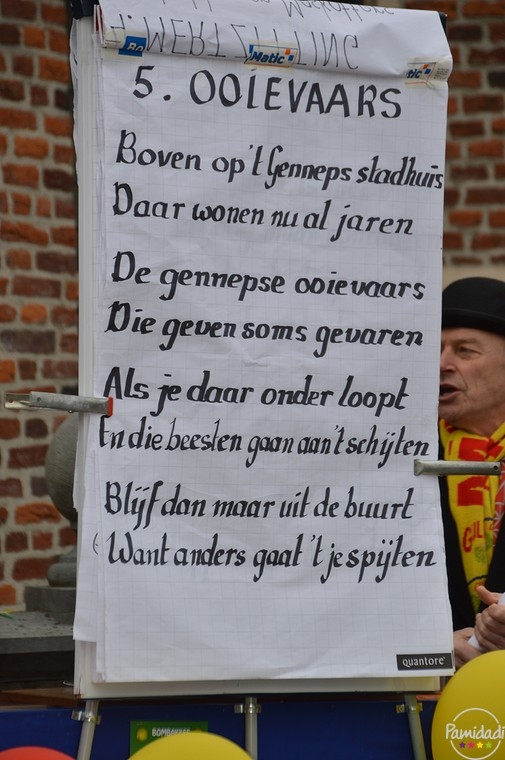 Bo Matic tic
5. OOIEVAARS
Boven op't Genneps stadhuis
Daar wonen nu al jaren
De gennepse ooievaars
Die geven soms gevaren
Als je daar onder loopt
En die beesten gaan aan't schijten
Blijf dan maar uit de buurt
Want anders gaat 't je spijten
quantore
BOMBAKKES
Pamidadi